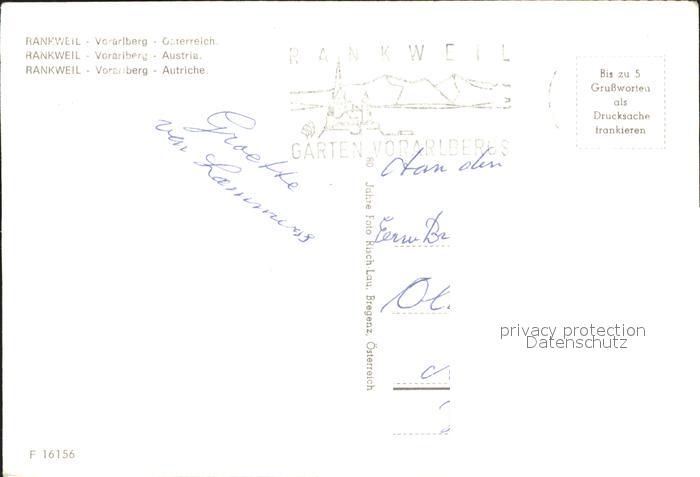 RANKWEIL - Vorarlberg - Österreich.
RANKWEIL - Vorarlberg - Austria.
RANKWEIL - Vorarlberg - Autriche.
RANKWEIL
GARTEN VORARLBERGS
Bis zu 5
Grußworten
als
Drucksache
frankieren
Groette
van
Aan den
80 Jahre Foto Risch-Lau, Bregenz, Österreich
privacy protection
Datenschutz
F 16156